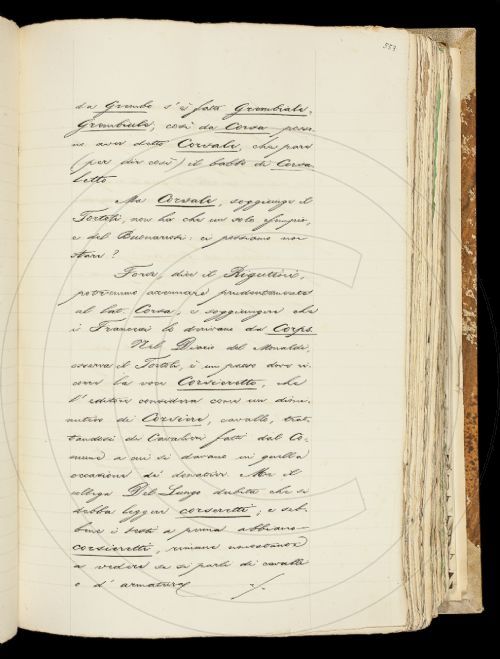 553
da Grembo s'è fatto Grembiale,
Grembiule, così da Corsa posso-
no aver detto Corsale, che pare
(per dir così) il babbo di Corsa
letto
Ma Corsale, soggiunge il
Tortoli, non ha che un solo esempio,
e del Buonarroti: ci possiamo noi
stare?
Forse, dice il Rigutini,
potremmo accennare prudentemente
al lat. Corsa, e soggiungere che
i Francesi lo derivano da Corps.
Nel Diario del Monaldi,
osserva il Tortoli, è un passo dove ri-
corre la voce Corsieretto, che
l'editore considera come un dimi-
nutivo di Corsiere, cavallo, trat-
tandosi di Cavalieri fatti dal Co-
mune a cui si davano in quella
occasione de' donativi. Ma il
collega Del Lungo dubita che si
debba leggere corseretti; e seb-
bene i testi a penna abbiano
corsieretti, rimane nonostante
a vedere se si parli di cavalli
o d' armature